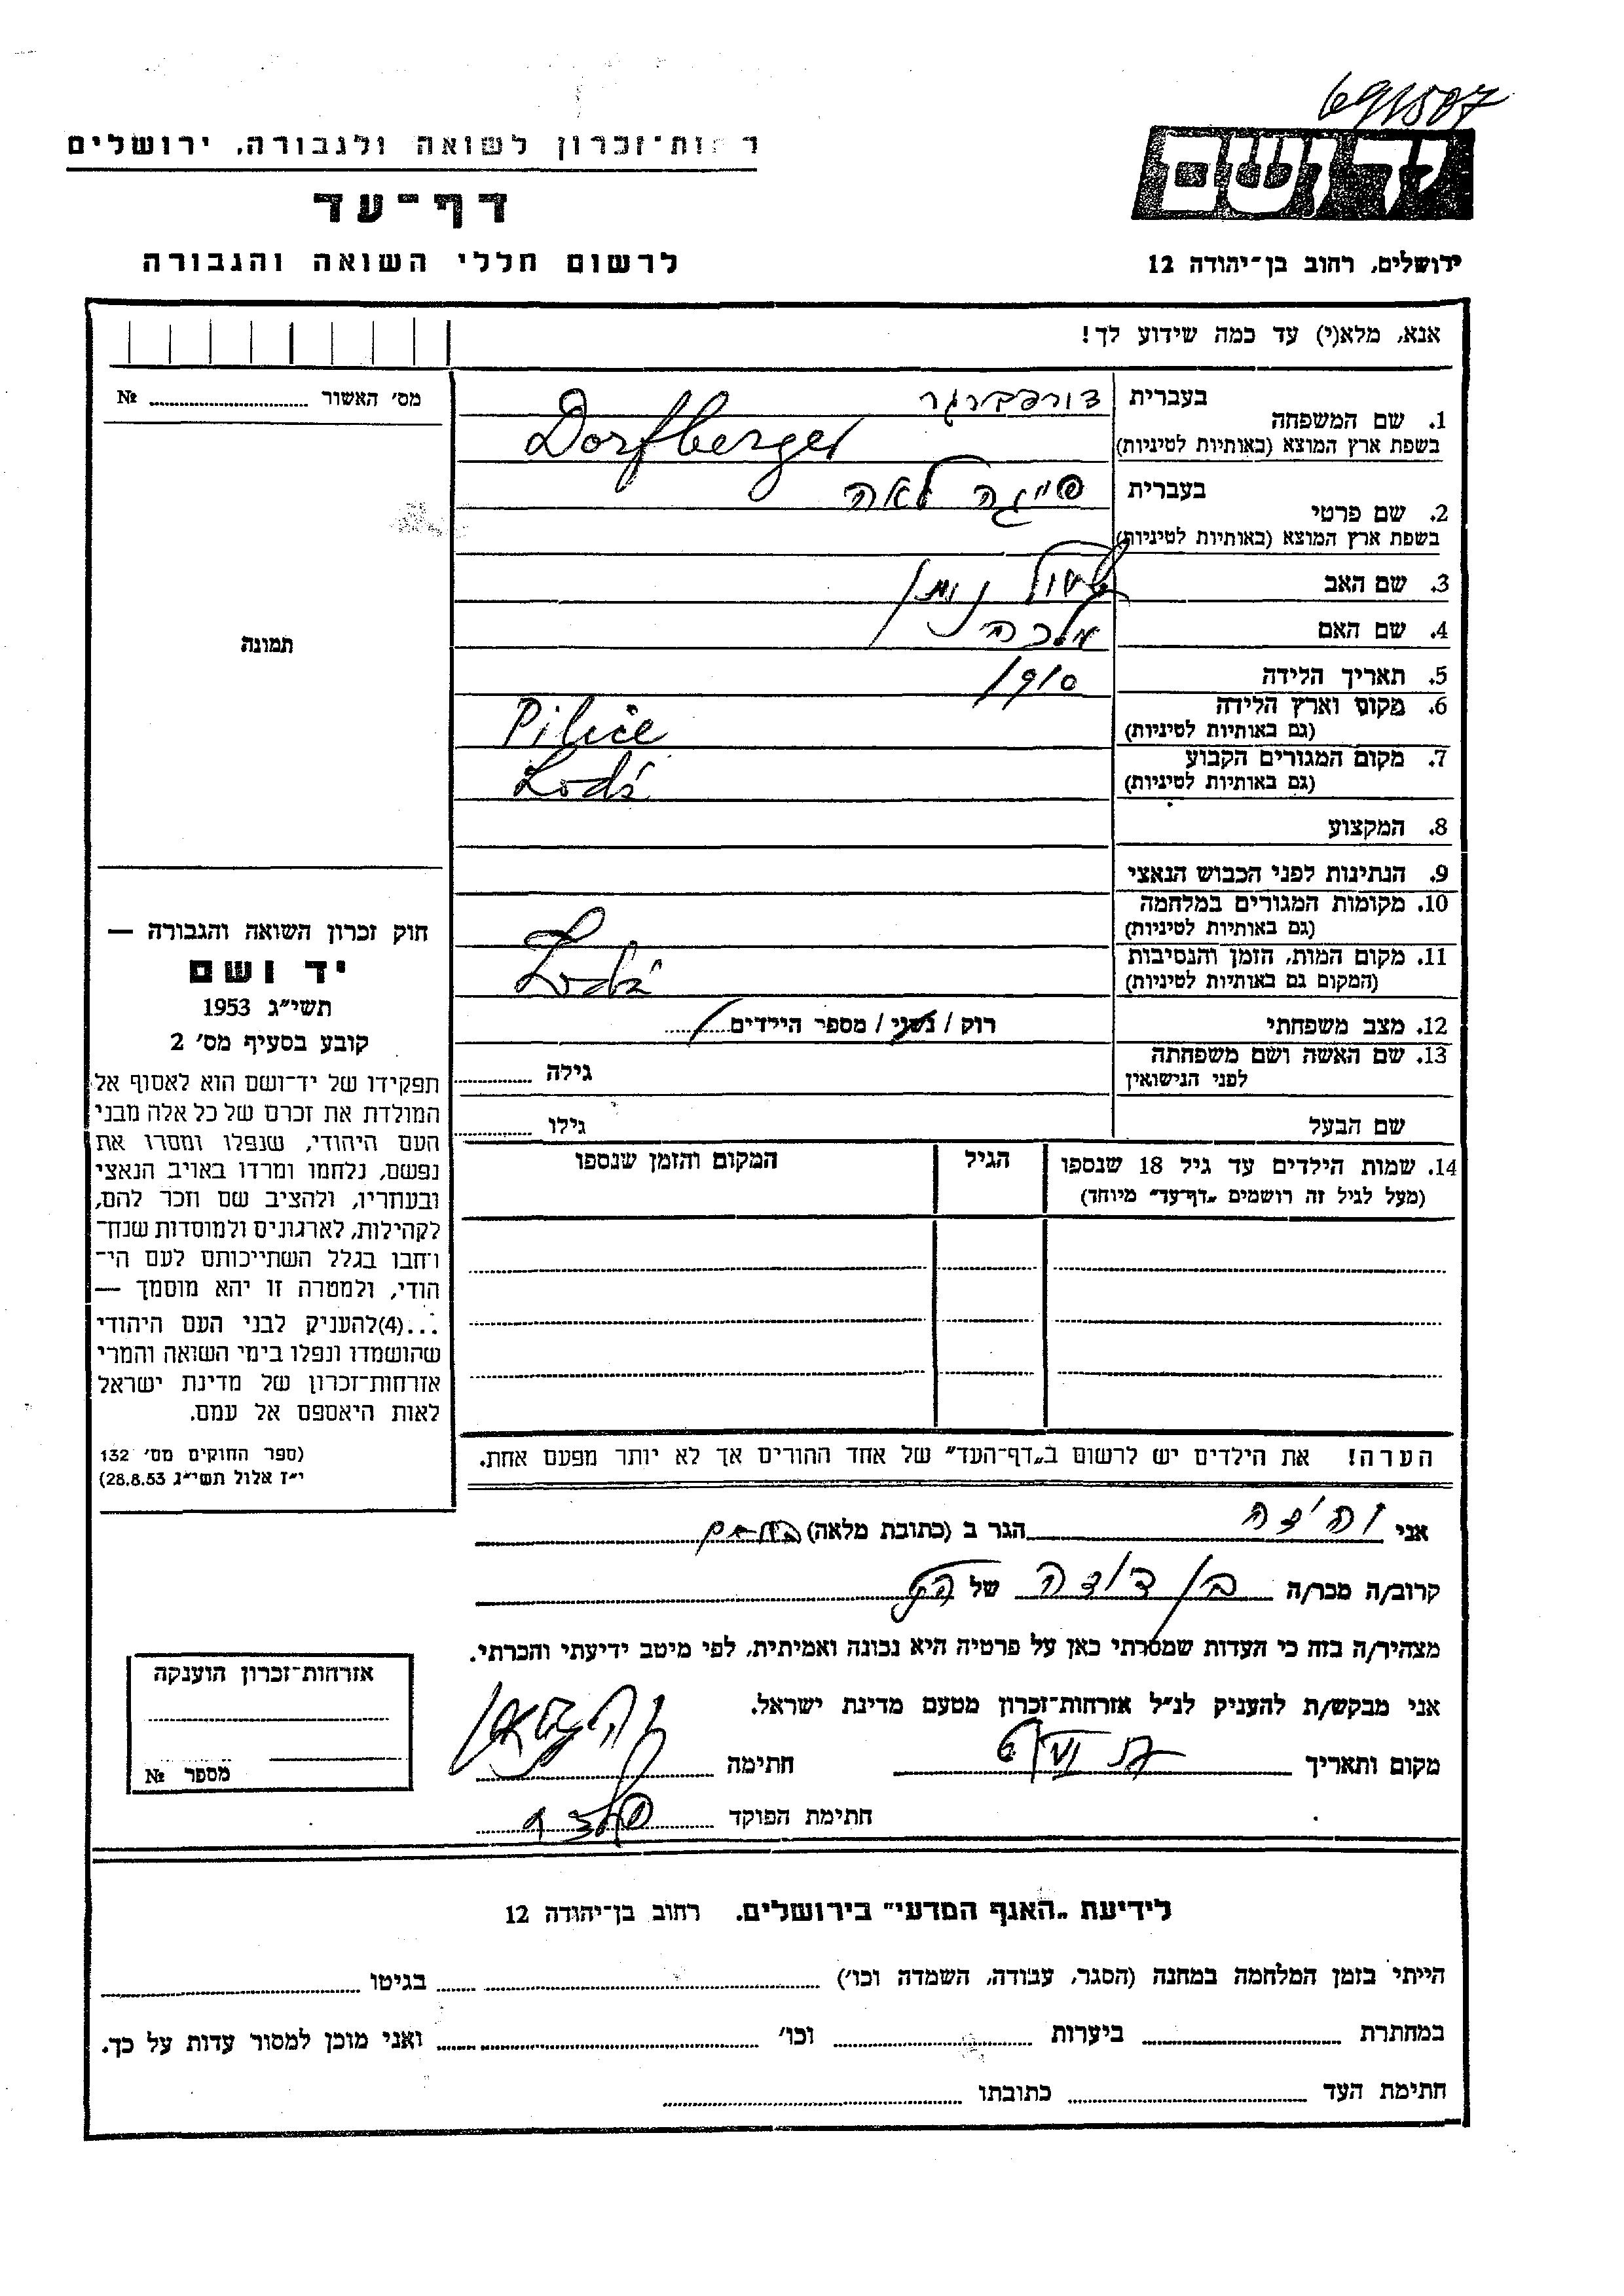 691507
רחות־זכרון לשואה ולגבורה, ירושלים
דף־עד
לרשום חללי השואה והגבורה
יד ושם
ירושלים, רחוב בן־יהודה 12
אנא, מלא(י) עד כמה שידוע לך!
מס׳ האשור № 
1. שם המשפחה
בעברית דורפברגר
בשפת ארץ המוצא (באותיות לטיניות) Dorfberger
2. שם פרטי
בעברית פייגה לאה
בשפת ארץ המוצא (באותיות לטיניות)
3. שם האב שאול נתן
4. שם האם מלכה
5. תאריך הלידה 1910
6. מקום וארץ הלידה
(גם באותיות לטיניות) Pilice
7. מקום המגורים הקבוע
(גם באותיות לטיניות) Lodź
8. המקצוע
9. הנתינות לפני הכבוש הנאצי
10. מקומות המגורים במלחמה
(גם באותיות לטיניות)
11. מקום המות, הזמן והנסיבות
(המקום גם באותיות לטיניות) Lodź
12. מצב משפחתי רוק / נשוי / מספר הילדים
13. שם האשה ושם משפחתה
לפני הנישואין
גילה
שם הבעל
גילו
14. שמות הילדים עד גיל 18 שנספו
(מעל לגיל זה רושמים „דף־עד״ מיוחד)
הגיל
המקום והזמן שנספו
הערה! את הילדים יש לרשום ב„דף־העד״ של אחד ההורים אך לא יותר מפעם אחת.
תמונה
חוק זכרון השואה והגבורה —
יד ושם
תשי״ג 1953
קובע בסעיף מס׳ 2
תפקידו של יד־ושם הוא לאסוף אל
המולדת את זכרם של כל אלה מבני
העם היהודי, שנפלו ומסרו את
נפשם, נלחמו ומרדו באויב הנאצי
ובעוזריו, ולהציב שם וזכר להם,
לקהילות, לארגונים ולמוסדות שנח־
רחבו בגלל השתייכותם לעם הי־
הודי, ולמטרה זו יהא מוסמך —
...(4)להעניק לבני העם היהודי
שהושמדו ונפלו בימי השואה והמרי
אזרחות־זכרון של מדינת ישראל
לאות היאספם אל עמם.
(ספר החוקים מס׳ 132
י״ז אלול תשי״ג 28.8.53)
אני הגר ב (כתובת מלאה)
קרוב/ה מכר/ה בן דודה של הנ״ל
מצהיר/ה בזה כי העדות שמסרתי כאן על פרטיה היא נכונה ואמיתית, לפי מיטב ידיעתי והכרתי.
אני מבקש/ת להעניק לנ״ל אזרחות־זכרון מטעם מדינת ישראל.
מקום ותאריך חתימה
חתימת הפוקד
אזרחות־זכרון הוענקה
מספר №
לידיעת „האגף המדעי״ בירושלים. רחוב בן־יהודה 12
הייתי בזמן המלחמה במחנה (הסגר, עבודה, השמדה וכו׳) בגיטו
במחתרת ביערות וכו׳ ואני מוכן למסור עדות על כך.
חתימת העד כתובתו